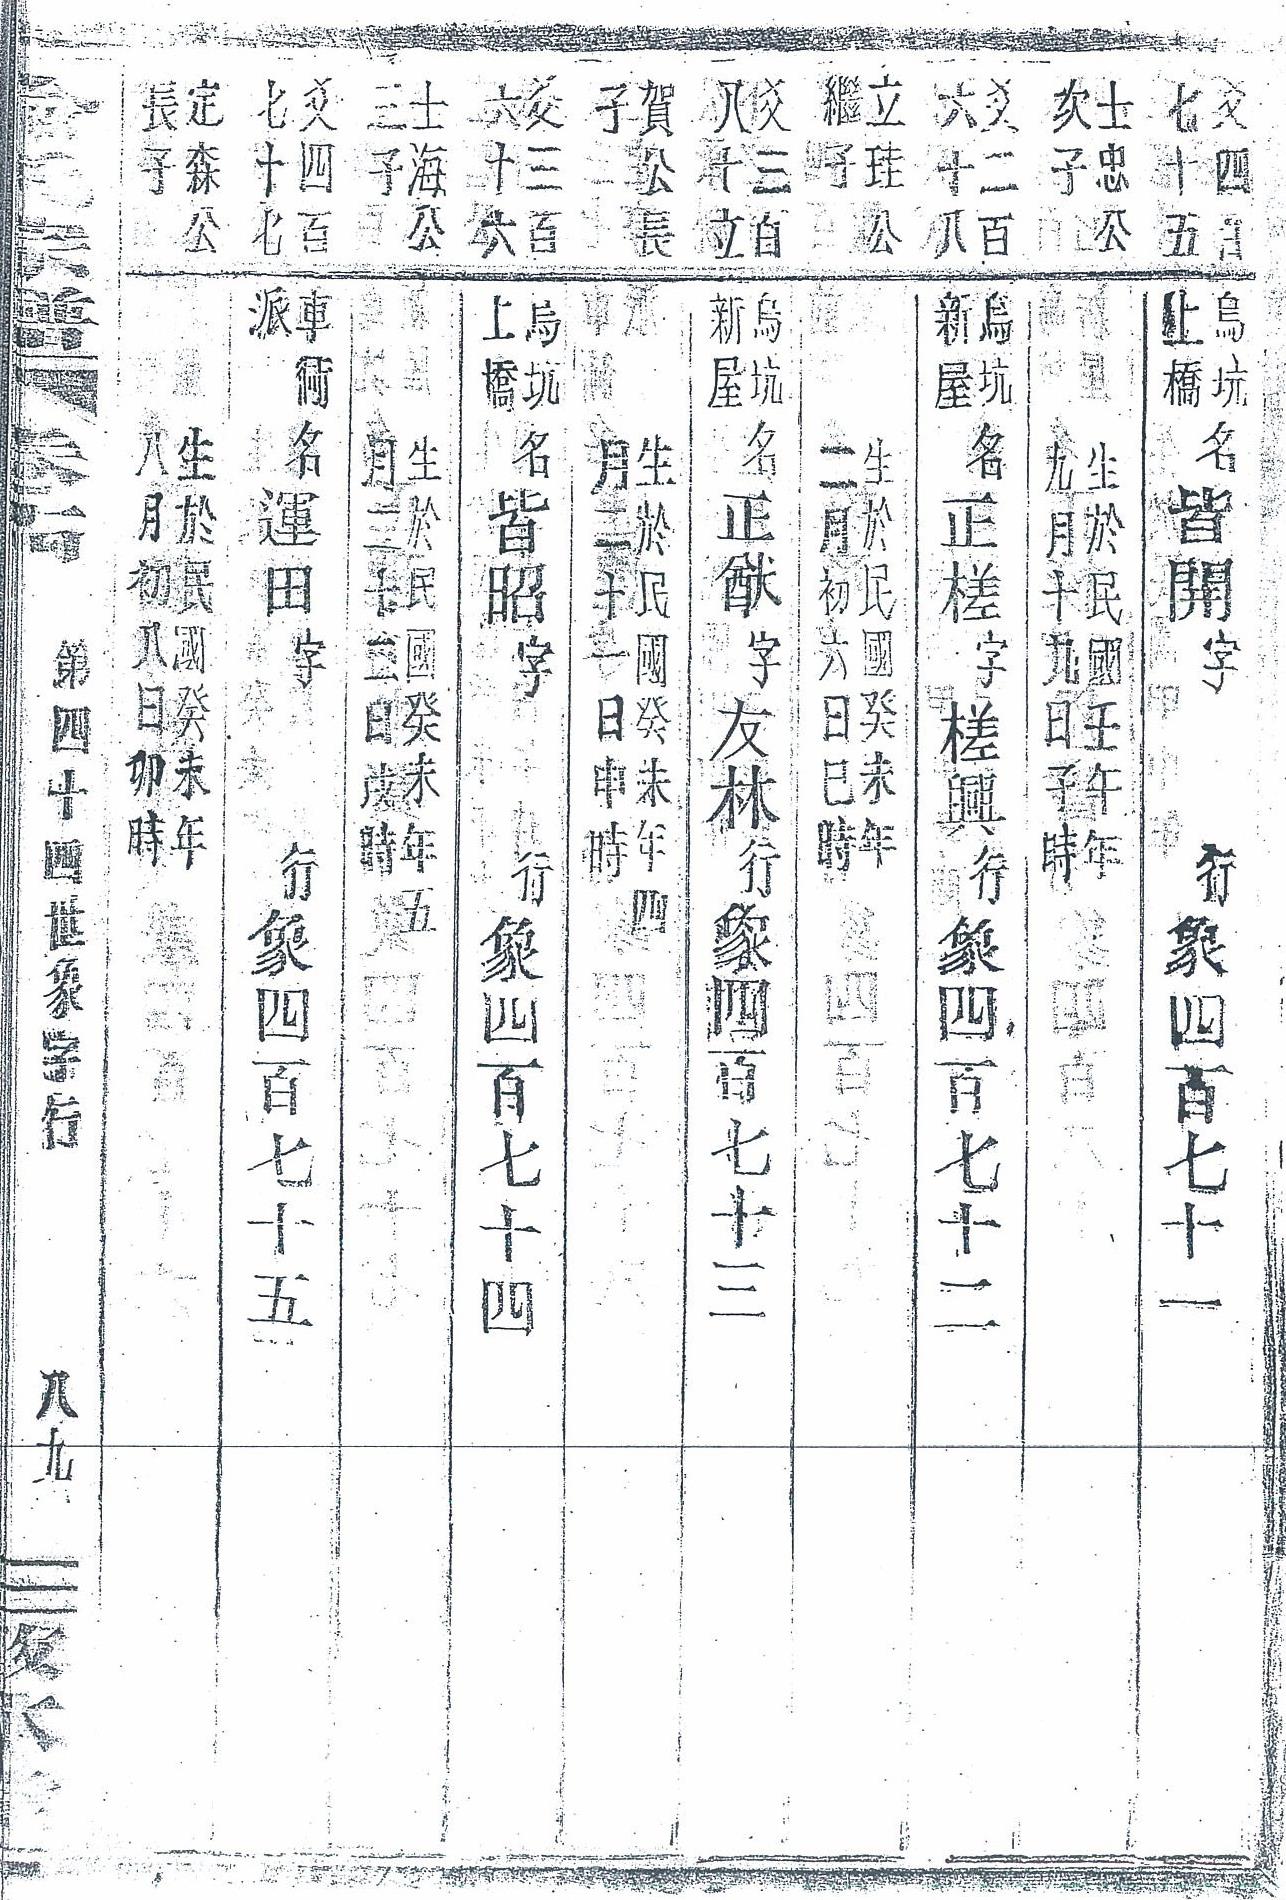 爻四百
七十五
士忠公
次子
爻二百
六十八
立珪公
繼子
爻三百
八十立
賀公長
子
爻三百
六十六
士海公
三子
爻四百
七十七
定森公
長子
烏坑
上橋
名皆開字 行象四百七十一
生於民國壬午年
九月十九日子時
烏坑
新屋
名正槎字槎興行象四百七十二
生於民國癸未年
二月初六日巳時
烏坑
新屋
名正猷字友林行象四百七十三
生於民國癸未年四
月二十一日申時
烏坑
上橋
名皆昭字 行象四百七十四
生於民國癸未年五
月二十三日戌時
車衕
派
名運田字 行象四百七十五
生於民國癸未年
八月初八日卯時
第四十四世象字行 八九